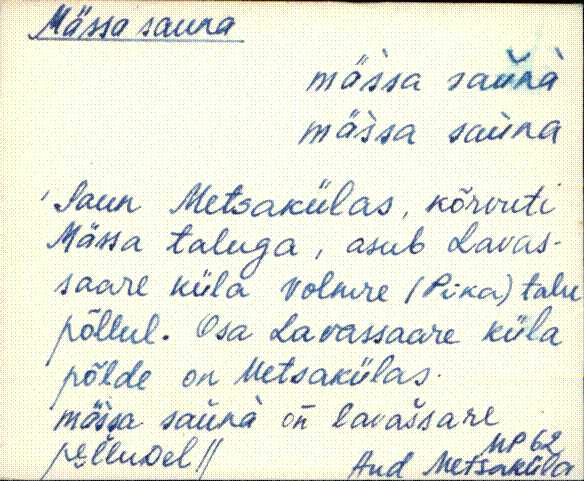 Mässa sauna
mässa saùnà
mässa saùna
Saun Metsakülas, kõrvuti
Mässa taluga, asub Lavas-
saare küla Volmre (Pika) talu
põllul. Osa Lavassaare küla
põlde on Metsakülas.
mässa saunà on lavassare
MP 62
And Metsaküla